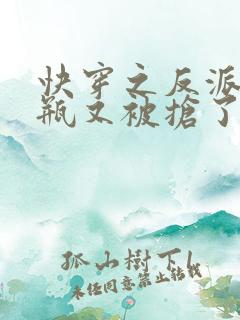 快穿之反派
瓶又被搶了
孤山樹下
未经同意禁止转载